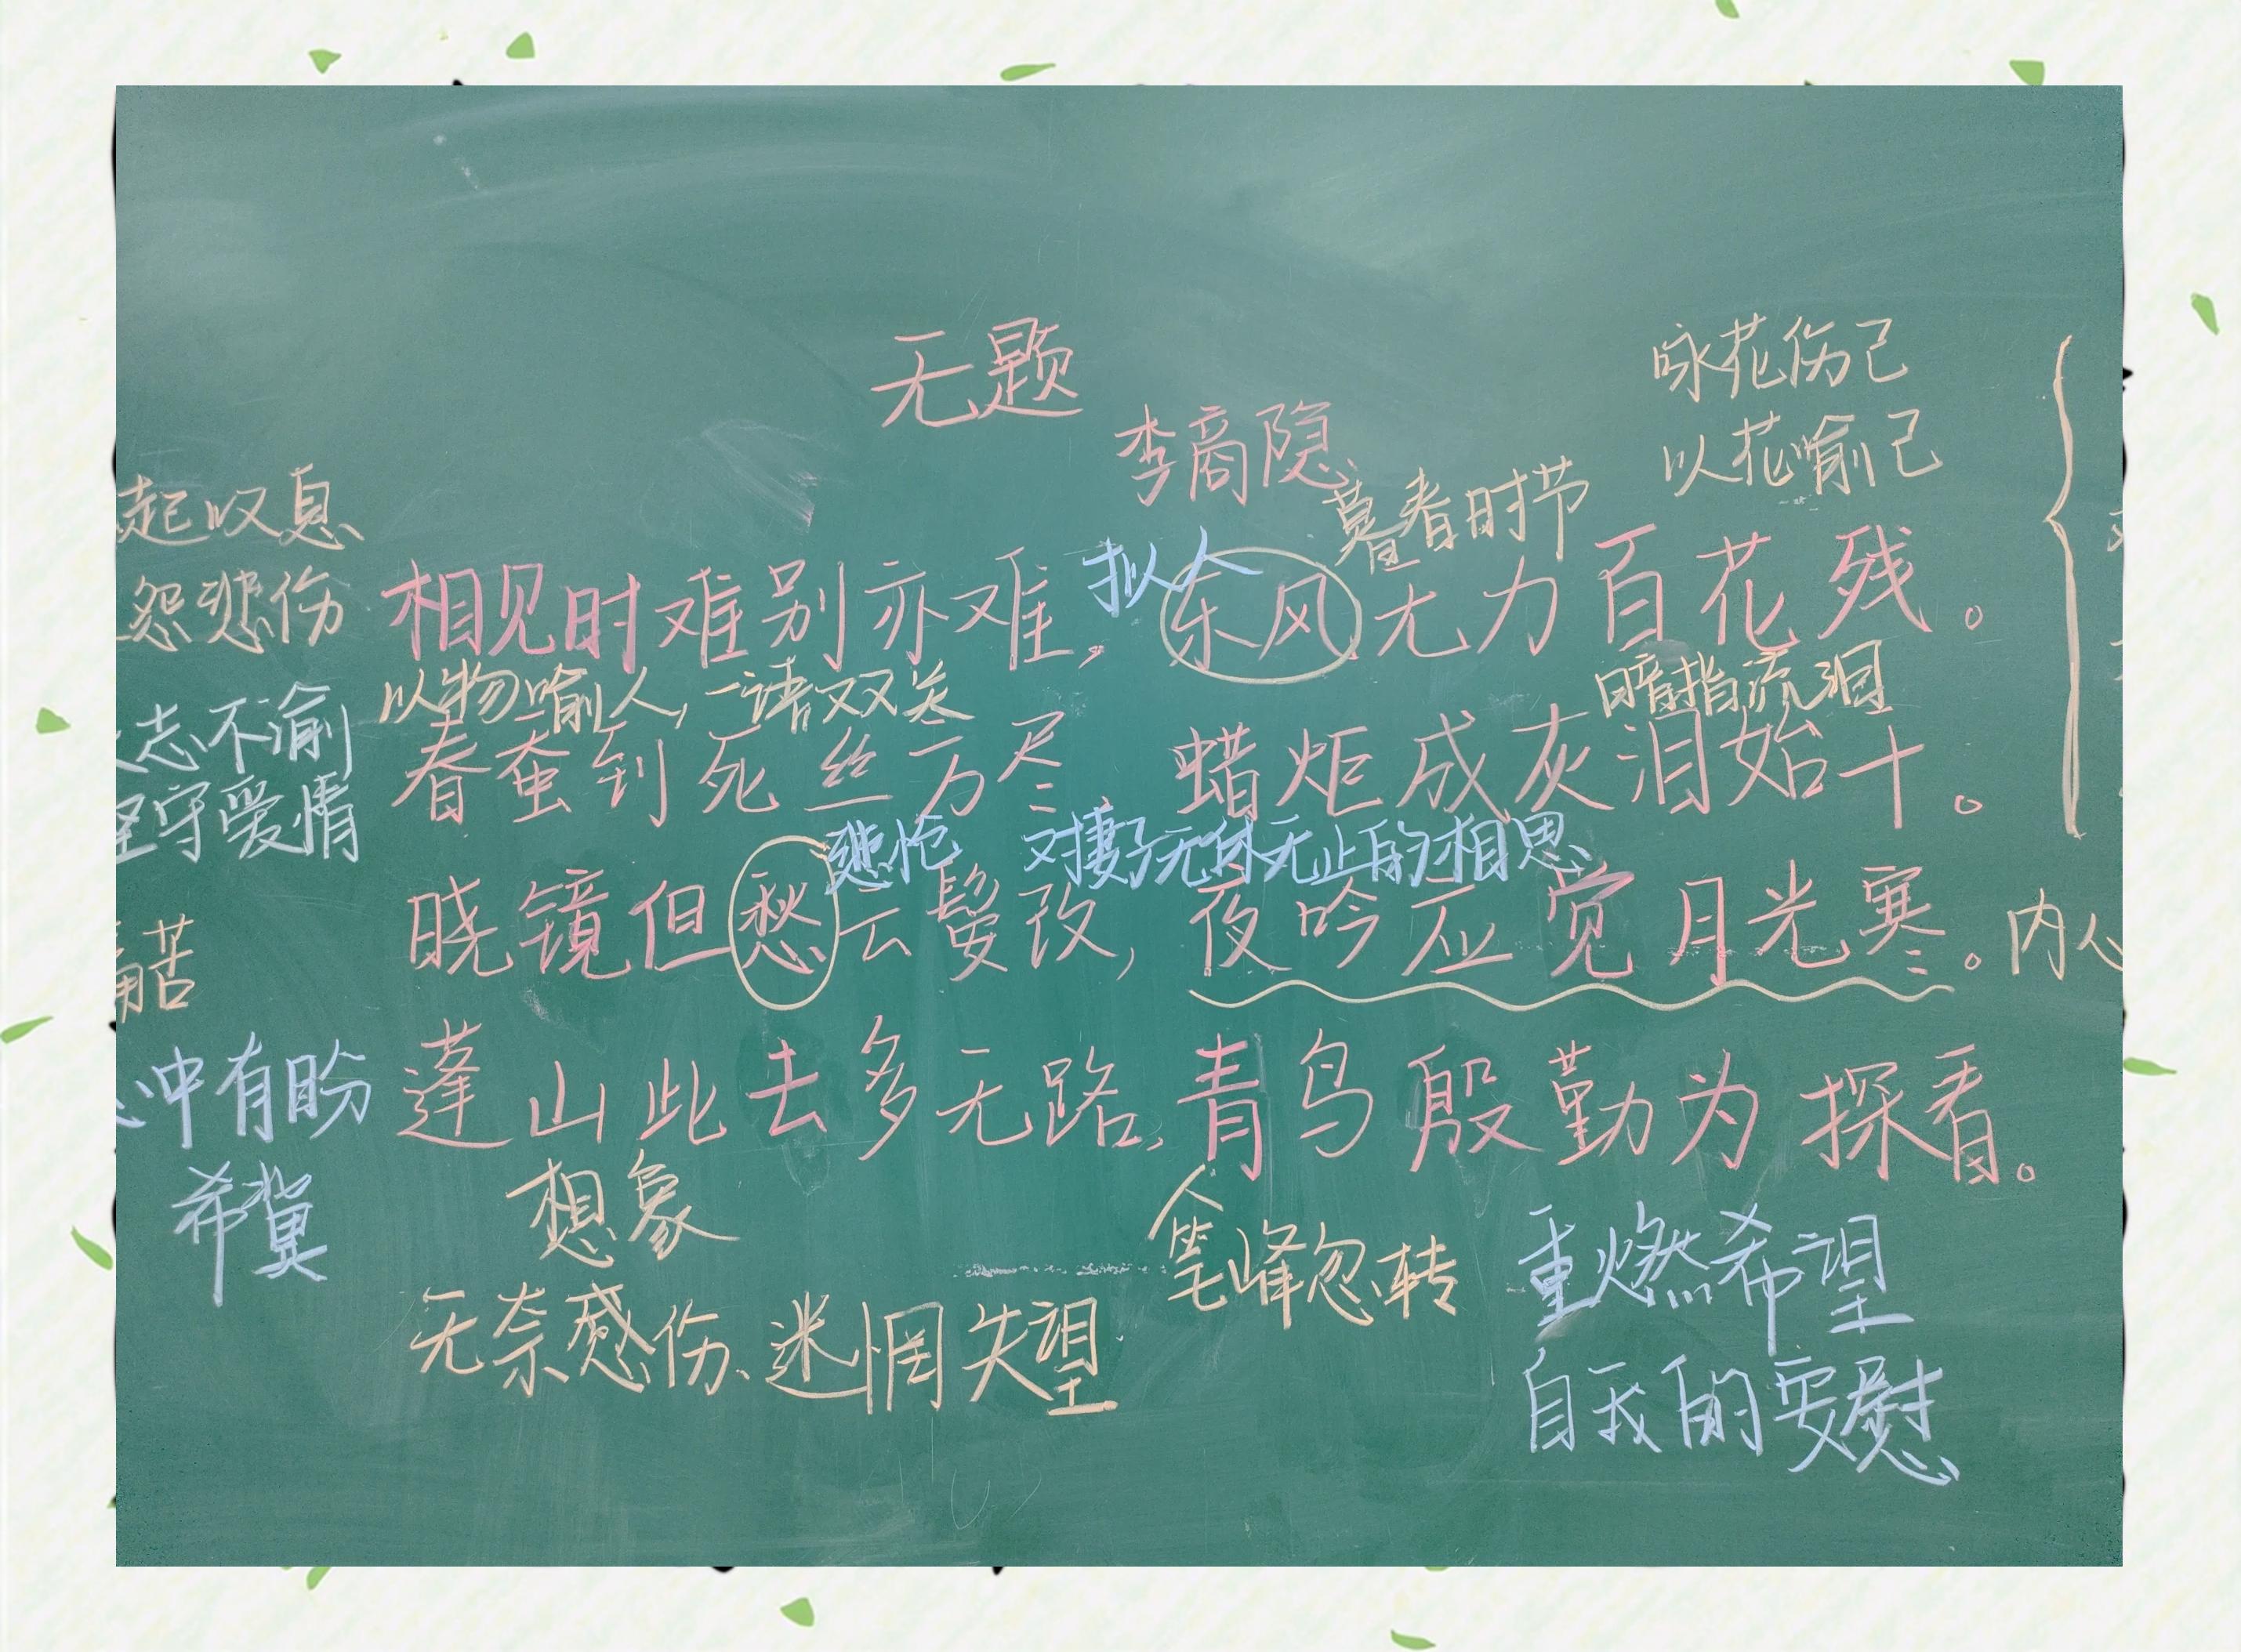 无题
李商隐
咏花伤己
以花喻己
暮春时节
起叹息
怨悲伤
拟人
相见时难别亦难，东风无力百花残。
志不渝
以物喻人，一语双关
暗指流泪
春蚕到死丝方尽 蜡炬成灰泪始干。
坚守爱情
悲怆 对妻子无休无止的相思
晓镜但愁云鬓改，夜吟应觉月光寒。内心
苦
心中有盼
蓬山此去多无路，青鸟殷勤为探看。
希冀
想象
笔峰忽转
重燃希望
无奈感伤、迷惘失望
自我的安慰